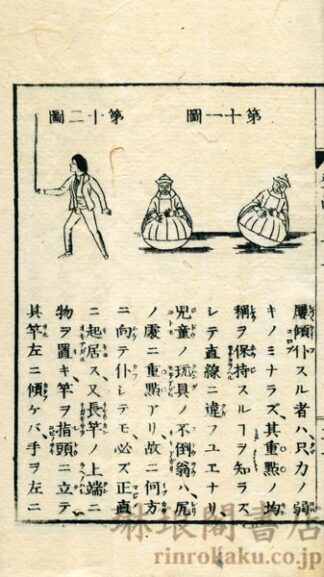 第十一圖
第十二圖
屢傾仆スル者ハ、只力ノ弱
キノミナラズ、其重點ノ均
稱ヲ保持スルヿヲ知ラズ
シテ直線ニ違フユエナリ、
兒童ノ玩具ノ不倒翁ハ、尻
ノ處ニ重點アリ、故ニ何方
ニ向テ仆レテモ、必ズ正直
ニ起居ス、又長竿ノ上端ニ
物ヲ置キ、竿ヲ指頭ニ立テ
其竿左ニ傾ケバ手ヲ左ニ
琳琅閣書店
rinrokaku.co.jp